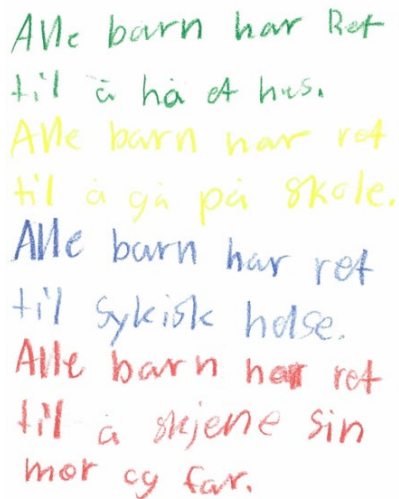 Alle barn har Ret
til å ha et hus.
Alle barn har ret
til å gå på skole.
Alle barn har ret
til sykisk helse.
Alle barn har ret
til å skjene sin
mor og far.